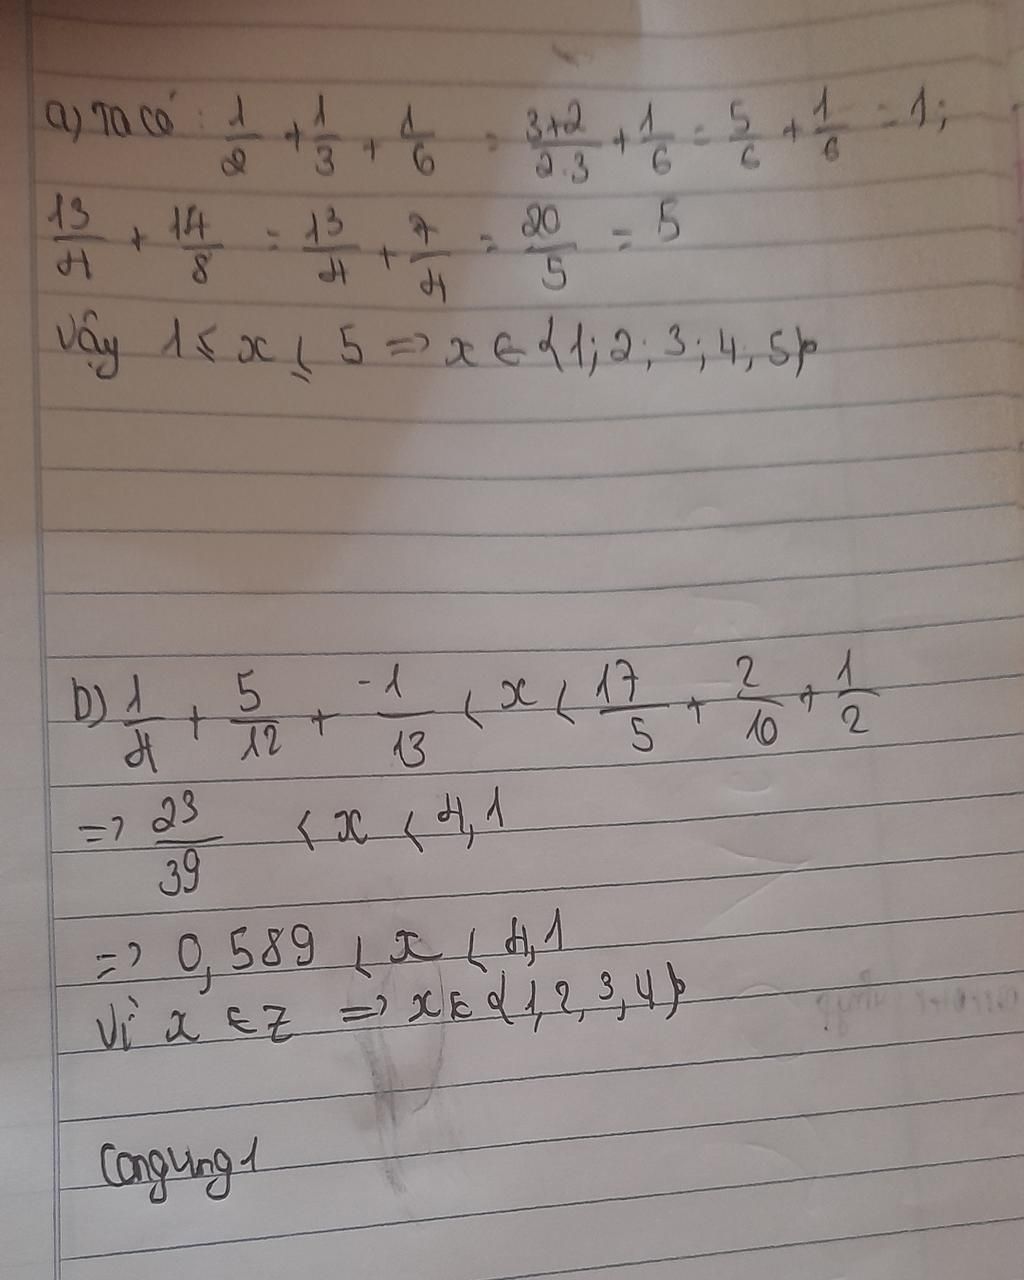 a) Ta có: 1/2 + 1/3 + 1/6 = 3+2/2.3 + 1/6 = 5/6 + 1/6 = 1;
13/4 + 14/8 = 13/4 + 7/4 = 20/5 = 5
Vậy 1 ≤ x ≤ 5 => x ∈ {1; 2; 3; 4; 5}
b) 1/4 + 5/12 + -1/13 < x < 17/5 + 2/10 + 1/2
=> 23/39 < x < 4,1
=> 0,589 < x < 4,1
Vì x ∈ Z => x ∈ {1, 2, 3, 4}
Congung1